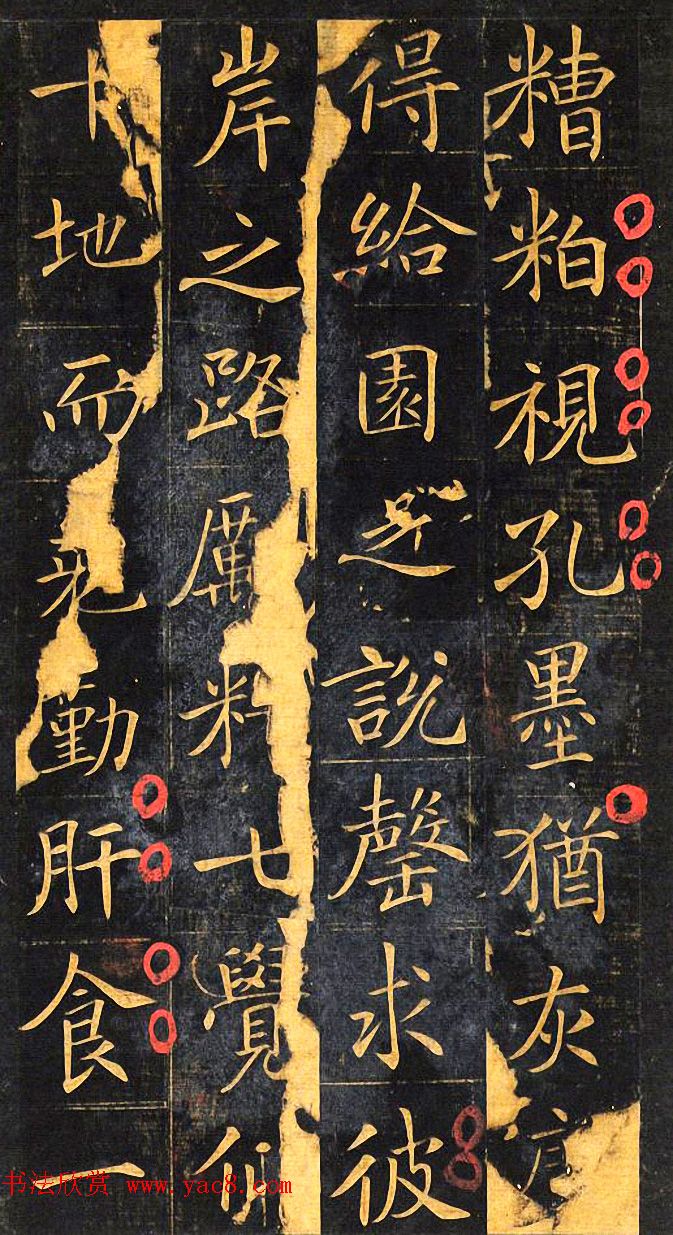 糟粕視孔墨猶灰
得給園說罄求彼
岸之路厲七覺
十地而勤肝食一
书法欣赏 www.yac8.com